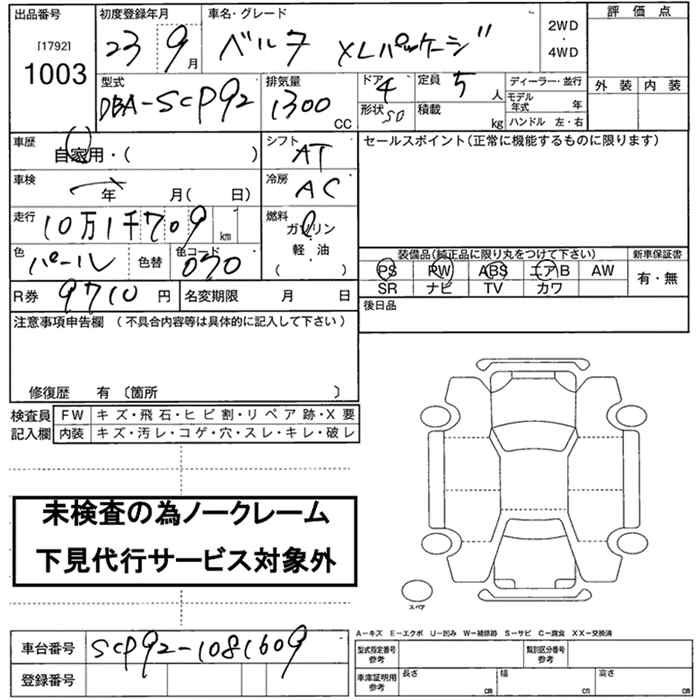 出品番号 初度登録年月 車名・グレード 2WD・4WD 評価点
[1792] 1003 23 9月 ベルタ XLパッケージ 外装 内装
型式 DBA-SCP92 排気量 1300 CC ドア 4 形状 SD 定員 5人 積載 kg ディーラー・並行 モデル年式 年 ハンドル 左・右
車歴 自家用・( ) シフト AT セールスポイント(正常に機能するものに限ります)
車検 年 月( 日) 冷房 AC
走行 10万1千709 km 燃料 ガソリン 軽・油 ( )
色 パール 色替 色コード 070 装備品(純正品に限り丸をつけて下さい) 新車保証書
PS PW ABS エアB AW 有・無
SR ナビ TV カワ
R券 9710円 名変期限 月 日 後日品
注意事項申告欄 (不具合内容等は具体的に記入して下さい)
修復歴 有 〔箇所 〕
検査員 FW キズ・飛石・ヒビ割・リペア跡・X要
記入欄 内装 キズ・汚レ・コゲ・穴・スレ・キレ・破レ
未検査の為ノークレーム
下見代行サービス対象外
スペア
車台番号 SCP92-1081609
登録番号
A-キズ E-エクボ U-凹み W-補修跡 S-サビ C-腐食 XX-交換済
型式指定番号 参考 類別区分番号 参考
車庫証明用 参考 長さ cm 幅 cm 高さ cm